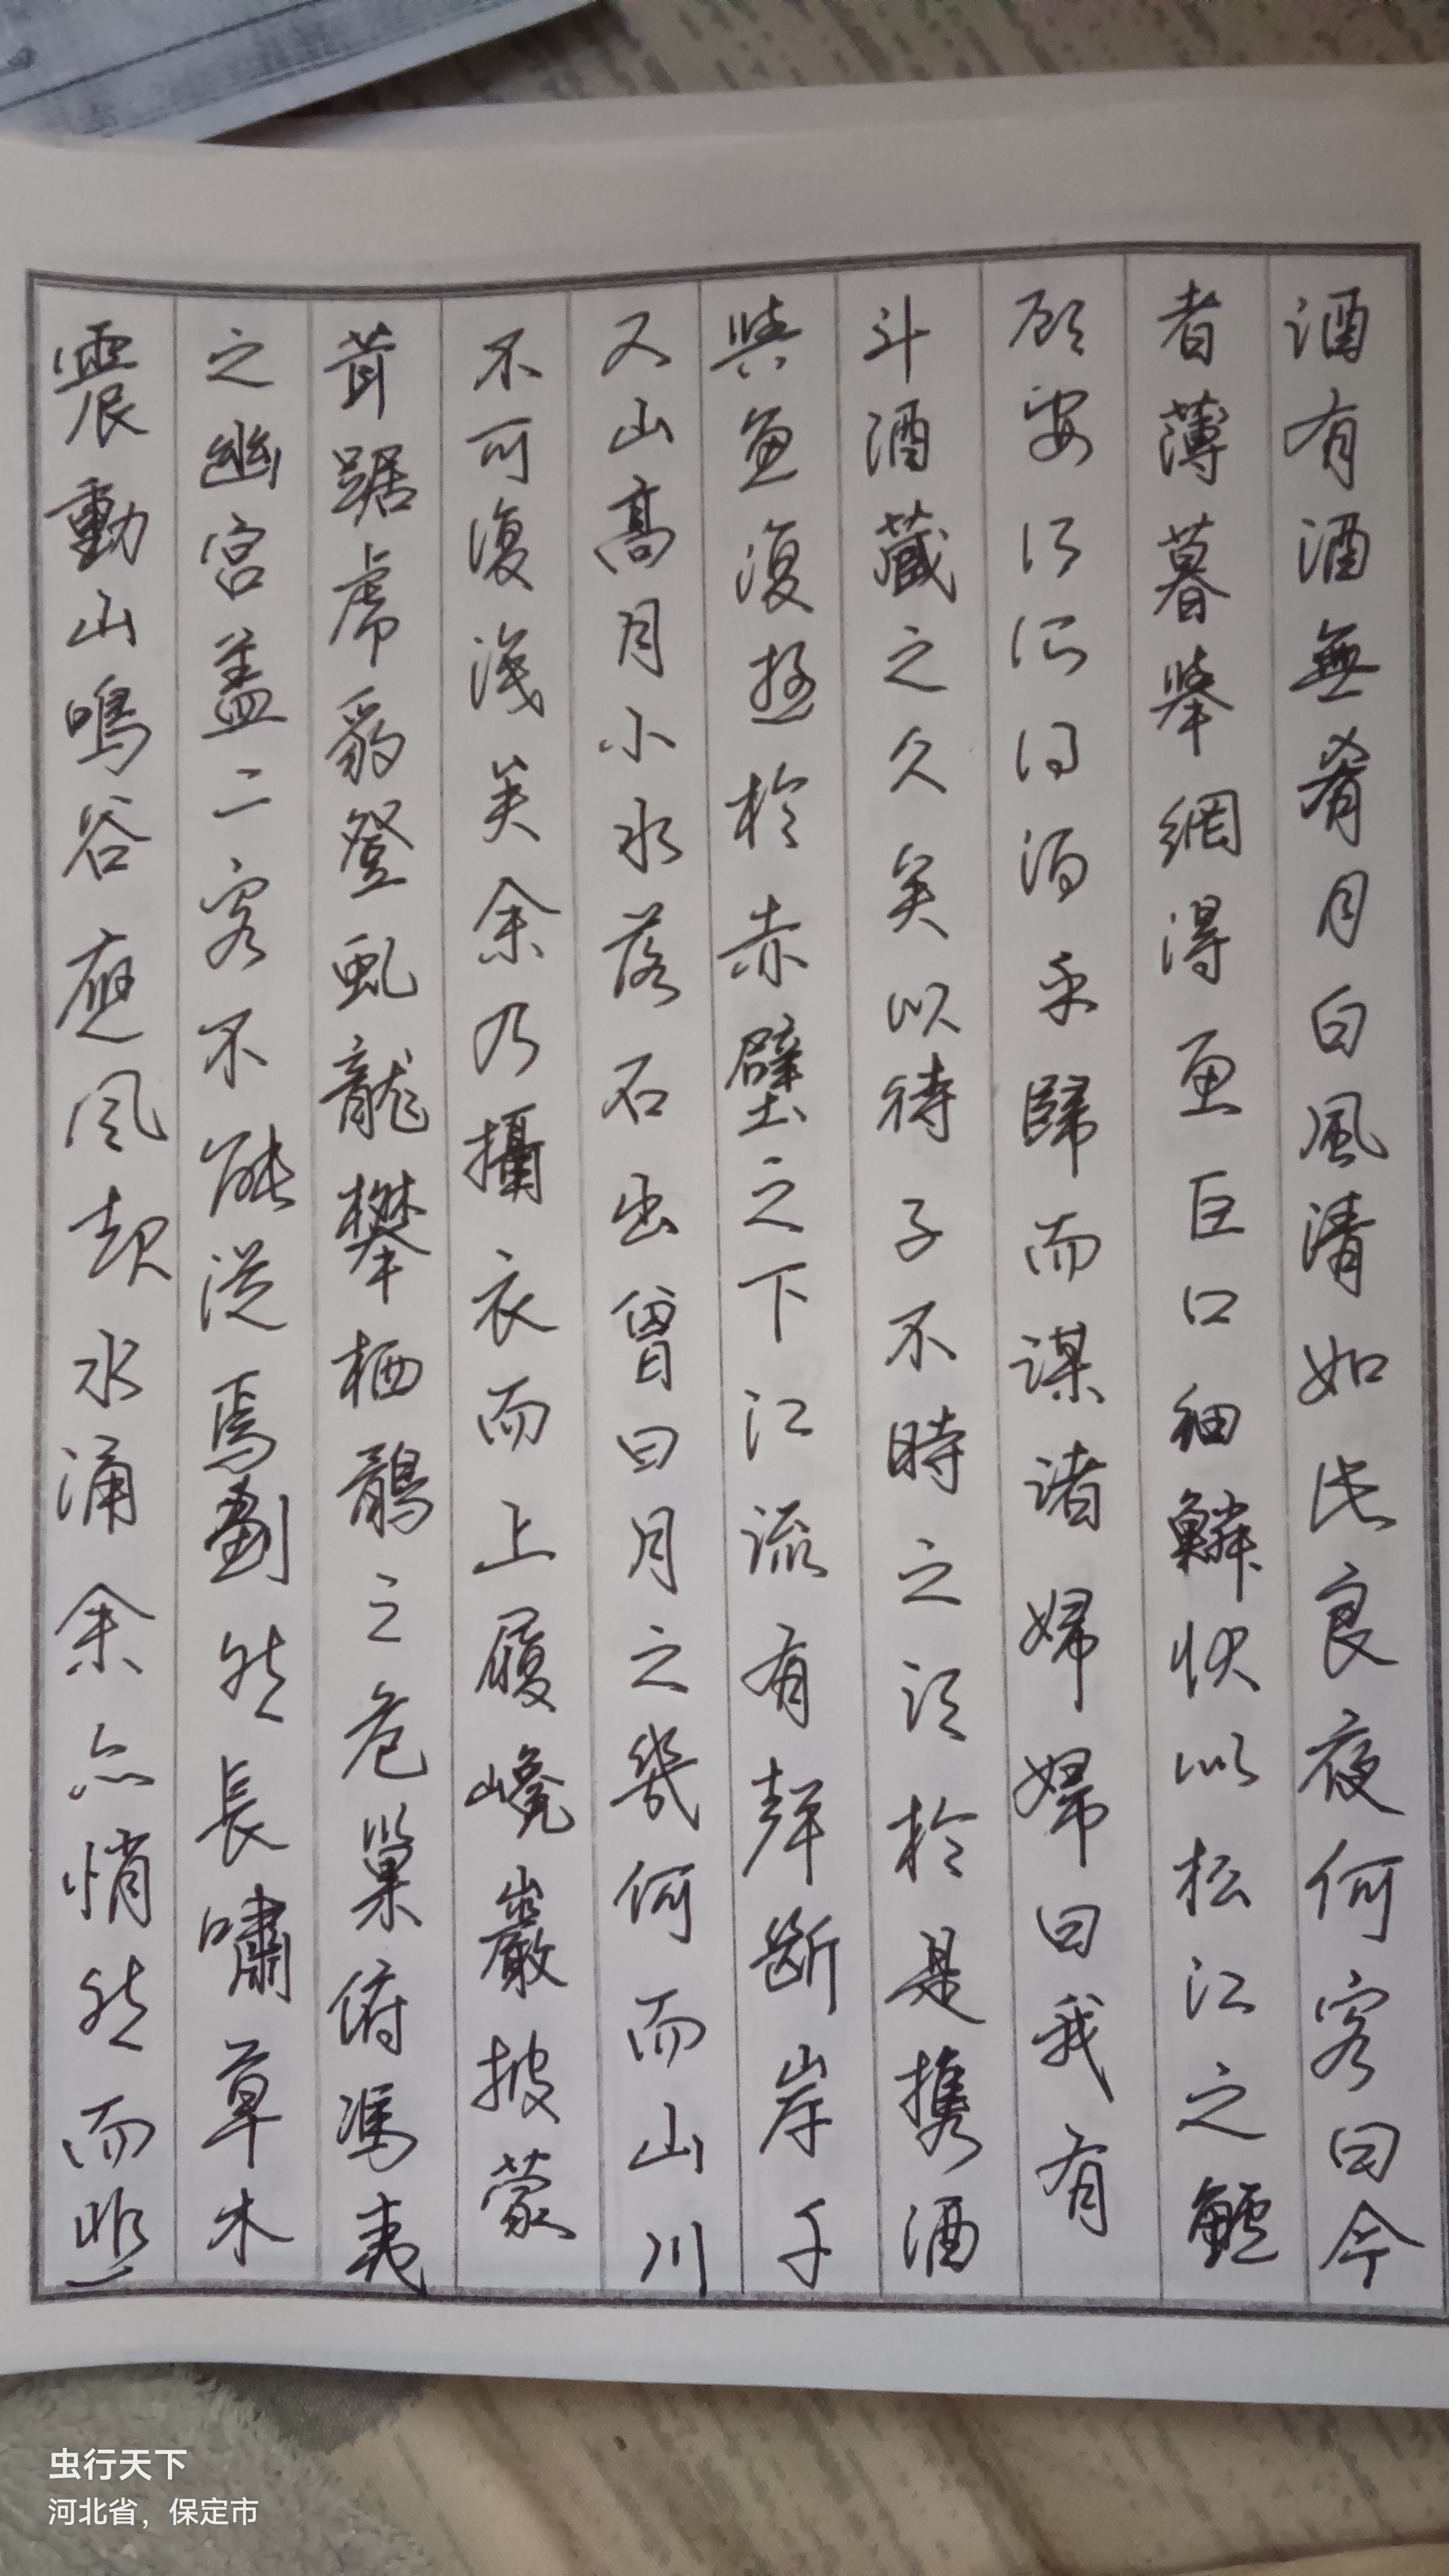 酒有酒無肴月白風清如此良夜何客曰今
者薄暮舉網得魚巨口細鱗狀似松江之鱸
顧安所所得酒乎歸而謀諸婦婦曰我有
斗酒藏之久矣以待子不時之須於是攜酒
與魚復遊於赤壁之下江流有聲斷岸千
尺山高月小水落石出曾日月之幾何而山川
不可復識矣余乃攝衣而上履巉巖披蒙
茸踞虎豹登虬龍攀栖鶻之危巢俯馮夷
之幽宮蓋二客不能從焉劃然長嘯草木
震動山鳴谷應風起水涌余亦悄然而悲
虫行天下
河北省，保定市